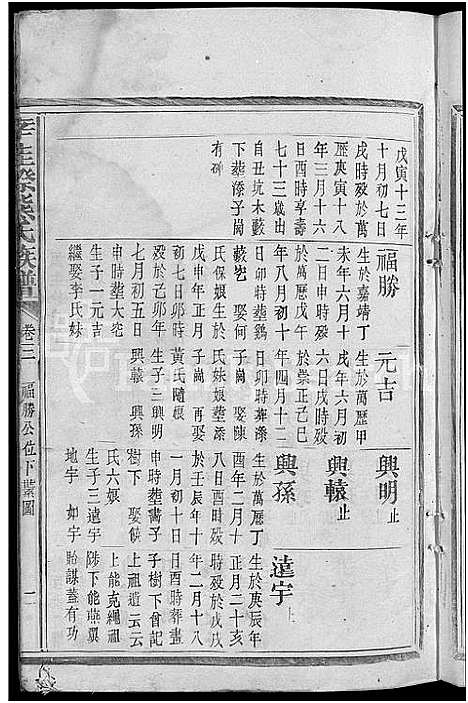 戊寅十三年
十月初七日
戌時歿於萬
歷庚寅十八
年三月十六
日酉時享壽
七十三歲出
自丑坑木藪
下塟漆子崗
有碑
福勝
生於嘉靖丁
未年六月十
二日申時歿
於萬歷戊午
年八月初十
日卯時塟鷄
藪窀 娶何
氏保娘生於
戊申年正月
初七日卯時
歿於己卯年
七月初五日
申時塟大窀
生子一元吉
繼娶李氏妹
元吉
生於萬歷甲
戌年六月初
六日戌時歿
於崇正己巳
年二月十二
日卯時塟漆
子崗 娶陳
氏妹娘塟漆
子崗 再娶
黃氏隨根
生子三興明
興轅 興孫
興明止
興轅止
興孫
生於萬歷丁
酉年二月十
八日酉時歿
於壬辰年十
一月初十日
申時塟耆子
樹下 娶饒
氏六娘
生子三遠宇
地宇 如宇
遠宇止
生於庚辰年
正月二十亥
時歿於戊戌
年二月十八
日酉時塟畵
子樹下曾記
上祖遺云云
上能克繩祖
陟下能燕翼
貽謀蓋有功
族譜
卷三
福勝公位下紫圖
二